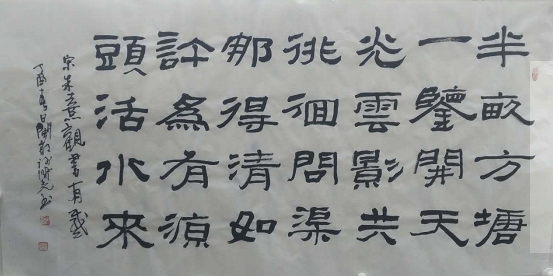 半畝方塘
一鑒開天
光雲影共
徘徊問渠
那得清如
許為有源
頭活水來
宋朱熹觀書有感
丁酉春日開封